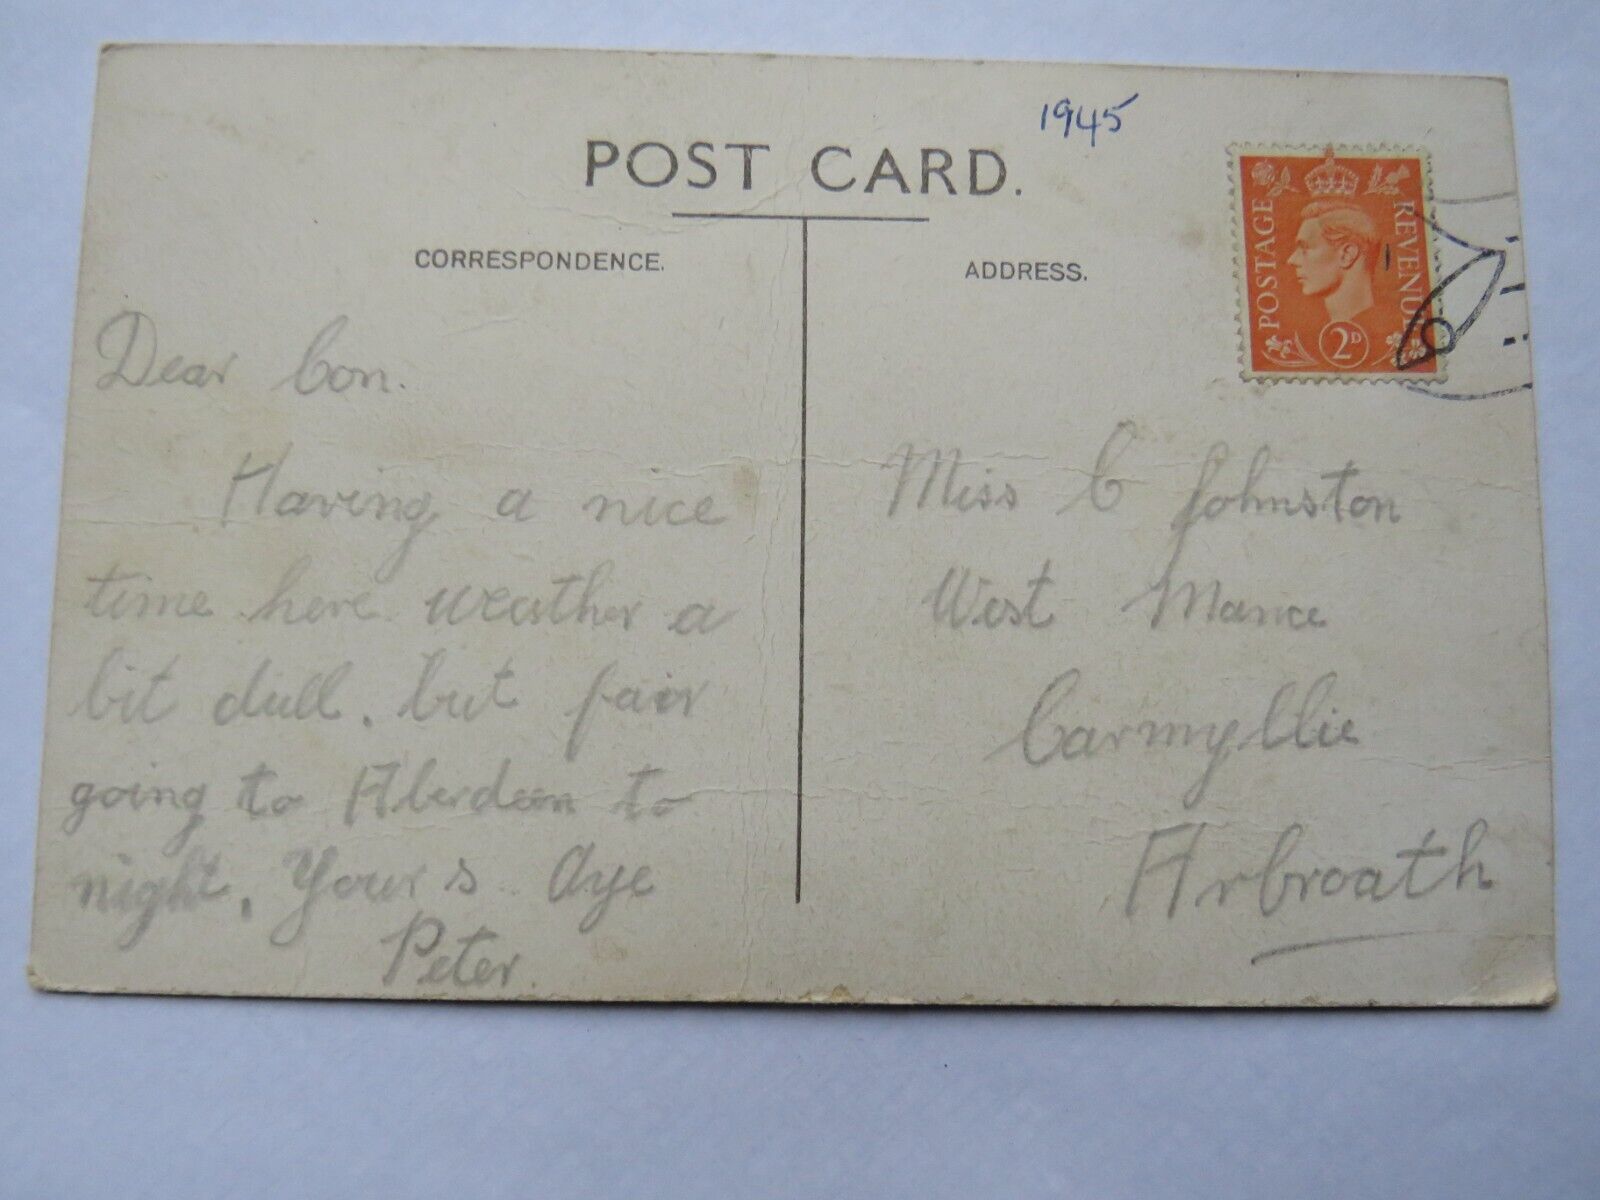 1945
POST CARD.
CORRESPONDENCE.
ADDRESS.
POSTAGE
REVENUE
2D
Dear Con.
Having a nice
time here weather a
bit dull. but fair
going to Aberdeen to
night. Yours Aye
Peter.
Miss C Johnston
West Mance
Carmyllie
Arbroath